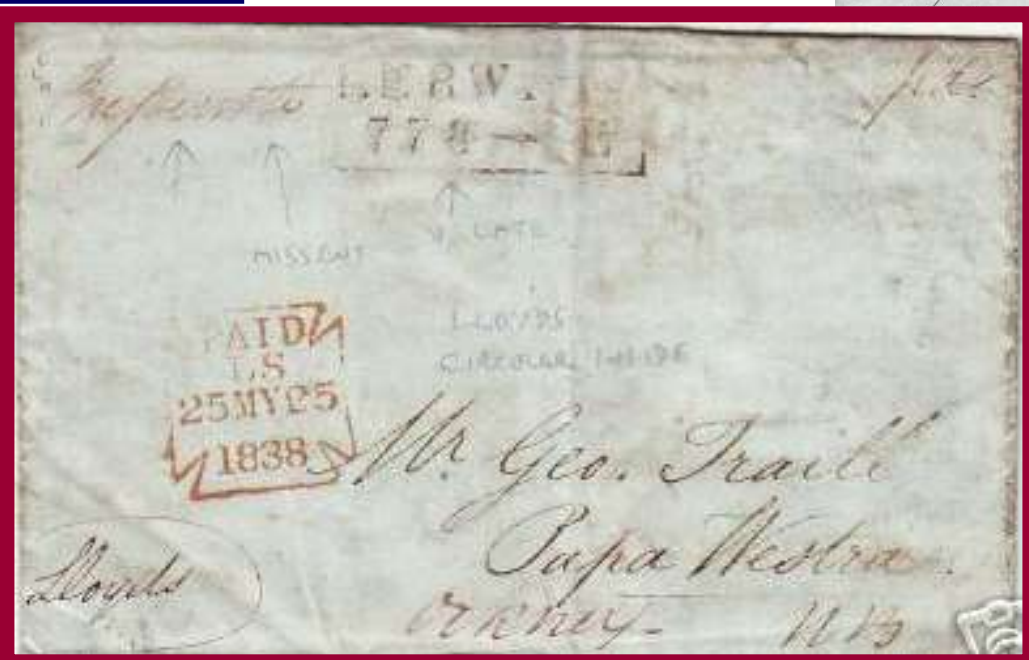 MISSENT
LATE
LLOYDS
CIRCULAR INSIDE
PAID
LS
25MY25
1838
Mr. Geo. Traill
Papa Westra.
Orkney- NB
Lloyds